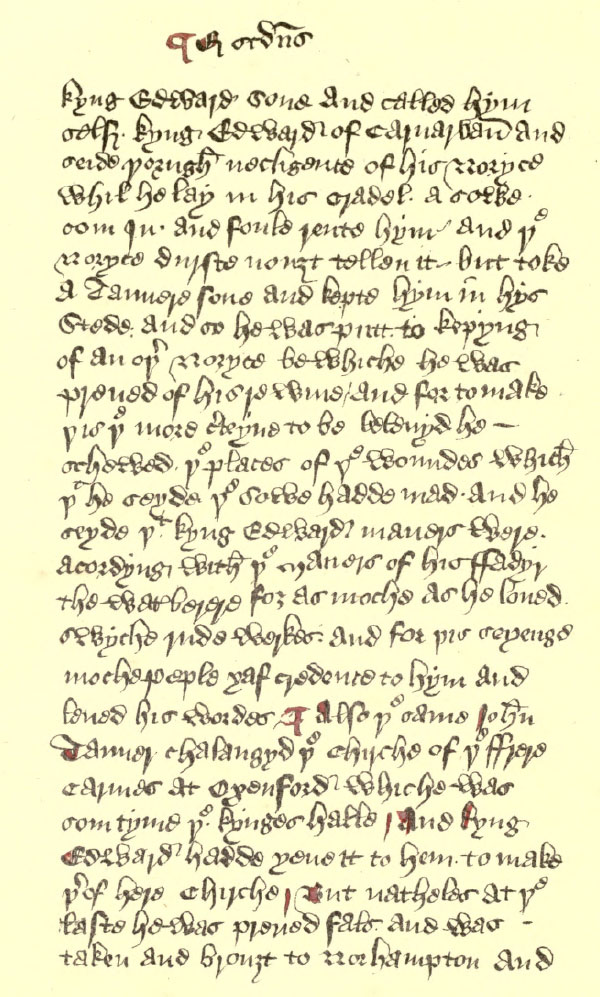 ¶ Edwardus s̄cds
kyng Edward sone And called hym
self kyng Edward of Carnarvan And
seide þorugh necligence of his Noryce
whil he lay in his cradel · a sowe ·
com In · And foule rente hym And þe
Noryce durste nouȝt tellen it but toke
A Tannere sone And kepte hym in hys
Stede And so he was putt to kepyng
of an oþer Noryce be whiche he was
preued of his rewme / And for to make
þis þe more c̄teyne to be belevyd he —
schewed þe places of þe woundes which
þt he seyde þe sowe hadde mad · And he
seyde þt kyng Edward maners were ·
acordyng with þe maners of his ffadyr
the waterberere for as moche as he loued
swyche rude werkes · and for þis seyenge
moche peple yaf credence to hym and
leued his wordes ¶ Also þe same John
Tanner chalangyd þe Chirche of þe ffrere
Carmes At Oxenford whiche was
som tyme þe kynges halle / And kyng
Edward hadde yeue it to hem · to make
þerof here Chirche / But natheles At þe
laste he was preued fals And was —
taken and brouȝt to Norhampton And